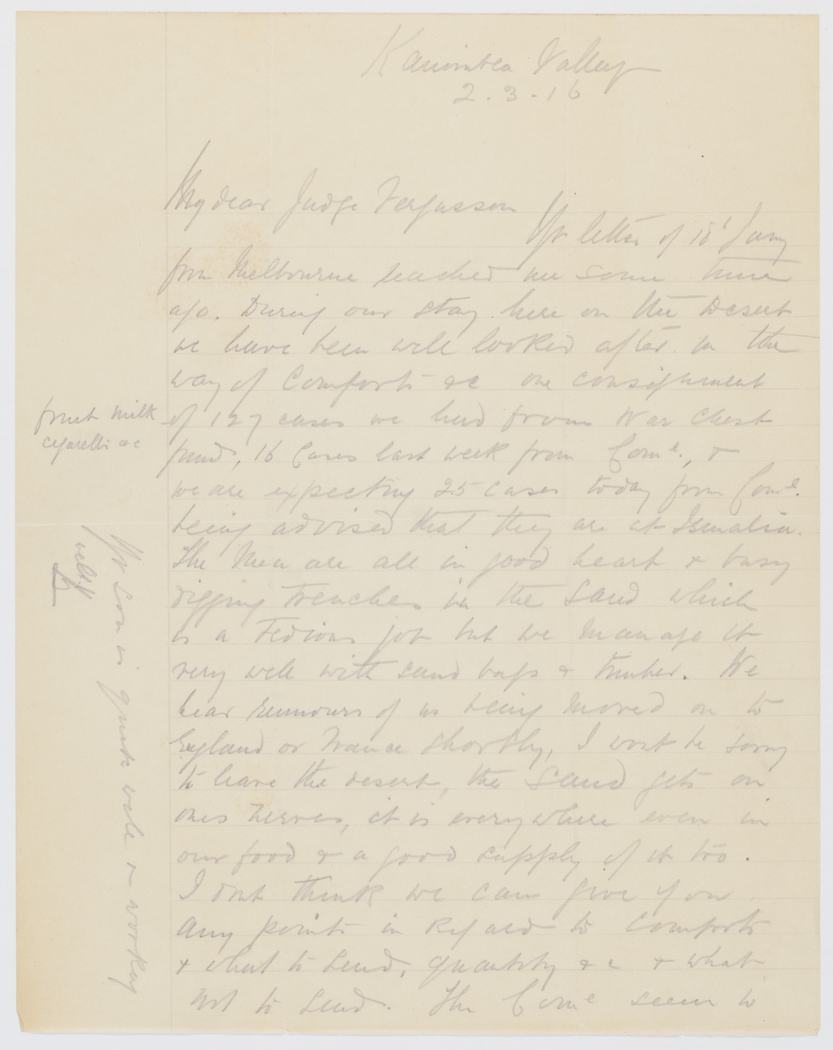 Valley
2.3.16
My dear Judge Fergusson
Yr letter of 18t Jany
from Melbourne reached me some time
ago. During our stay here on the Desert
we have been well looked after in the
way of Comforts &c one consignment
of 127 cases we had from War Chest
fund, 16 Cases last week from Come., &
we are expecting 25 cases today from Come.
being advised that they are at Ismalia.
The Men are all in good heart & busy
digging trenches in the Sand which
is a Tedious job but we manage it
very well with sand bags & timber. We
hear rumours of us being moved on to
England or France shortly, I wont be sorry
to leave the desert, the Sand gets on
ones nerves, it is everywhere even in
our food & a good supply of it too.
I dont think we can give you
any points in regard to Comforts
& what to send, quantity &c & what
not to send. The Come seem to
fruit milk
cigarettes &c
Yr son is quite well & working